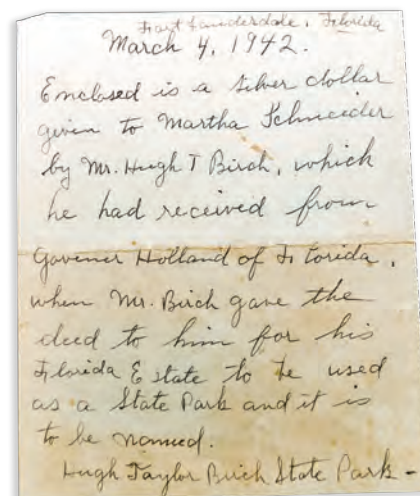 Fort Lauderdale, Florida
March 4, 1942.
Enclosed is a silver dollar
given to Martha Schneider
by Mr. Hugh T Birch, which
he had received from
Govener Holland of Florida,
when Mr. Birch gave the
deed to him for his
Florida Estate to be used
as a State Park and it is
to be named.
Hugh Taylor Birch State Park -